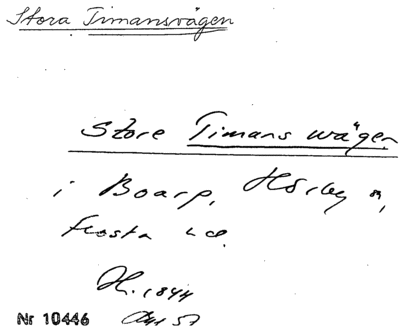 Stora Timansvägen
Store Timans wägen
i Boarp, Hörby sn,
Frosta hd.
H. 1844
Nr 10446